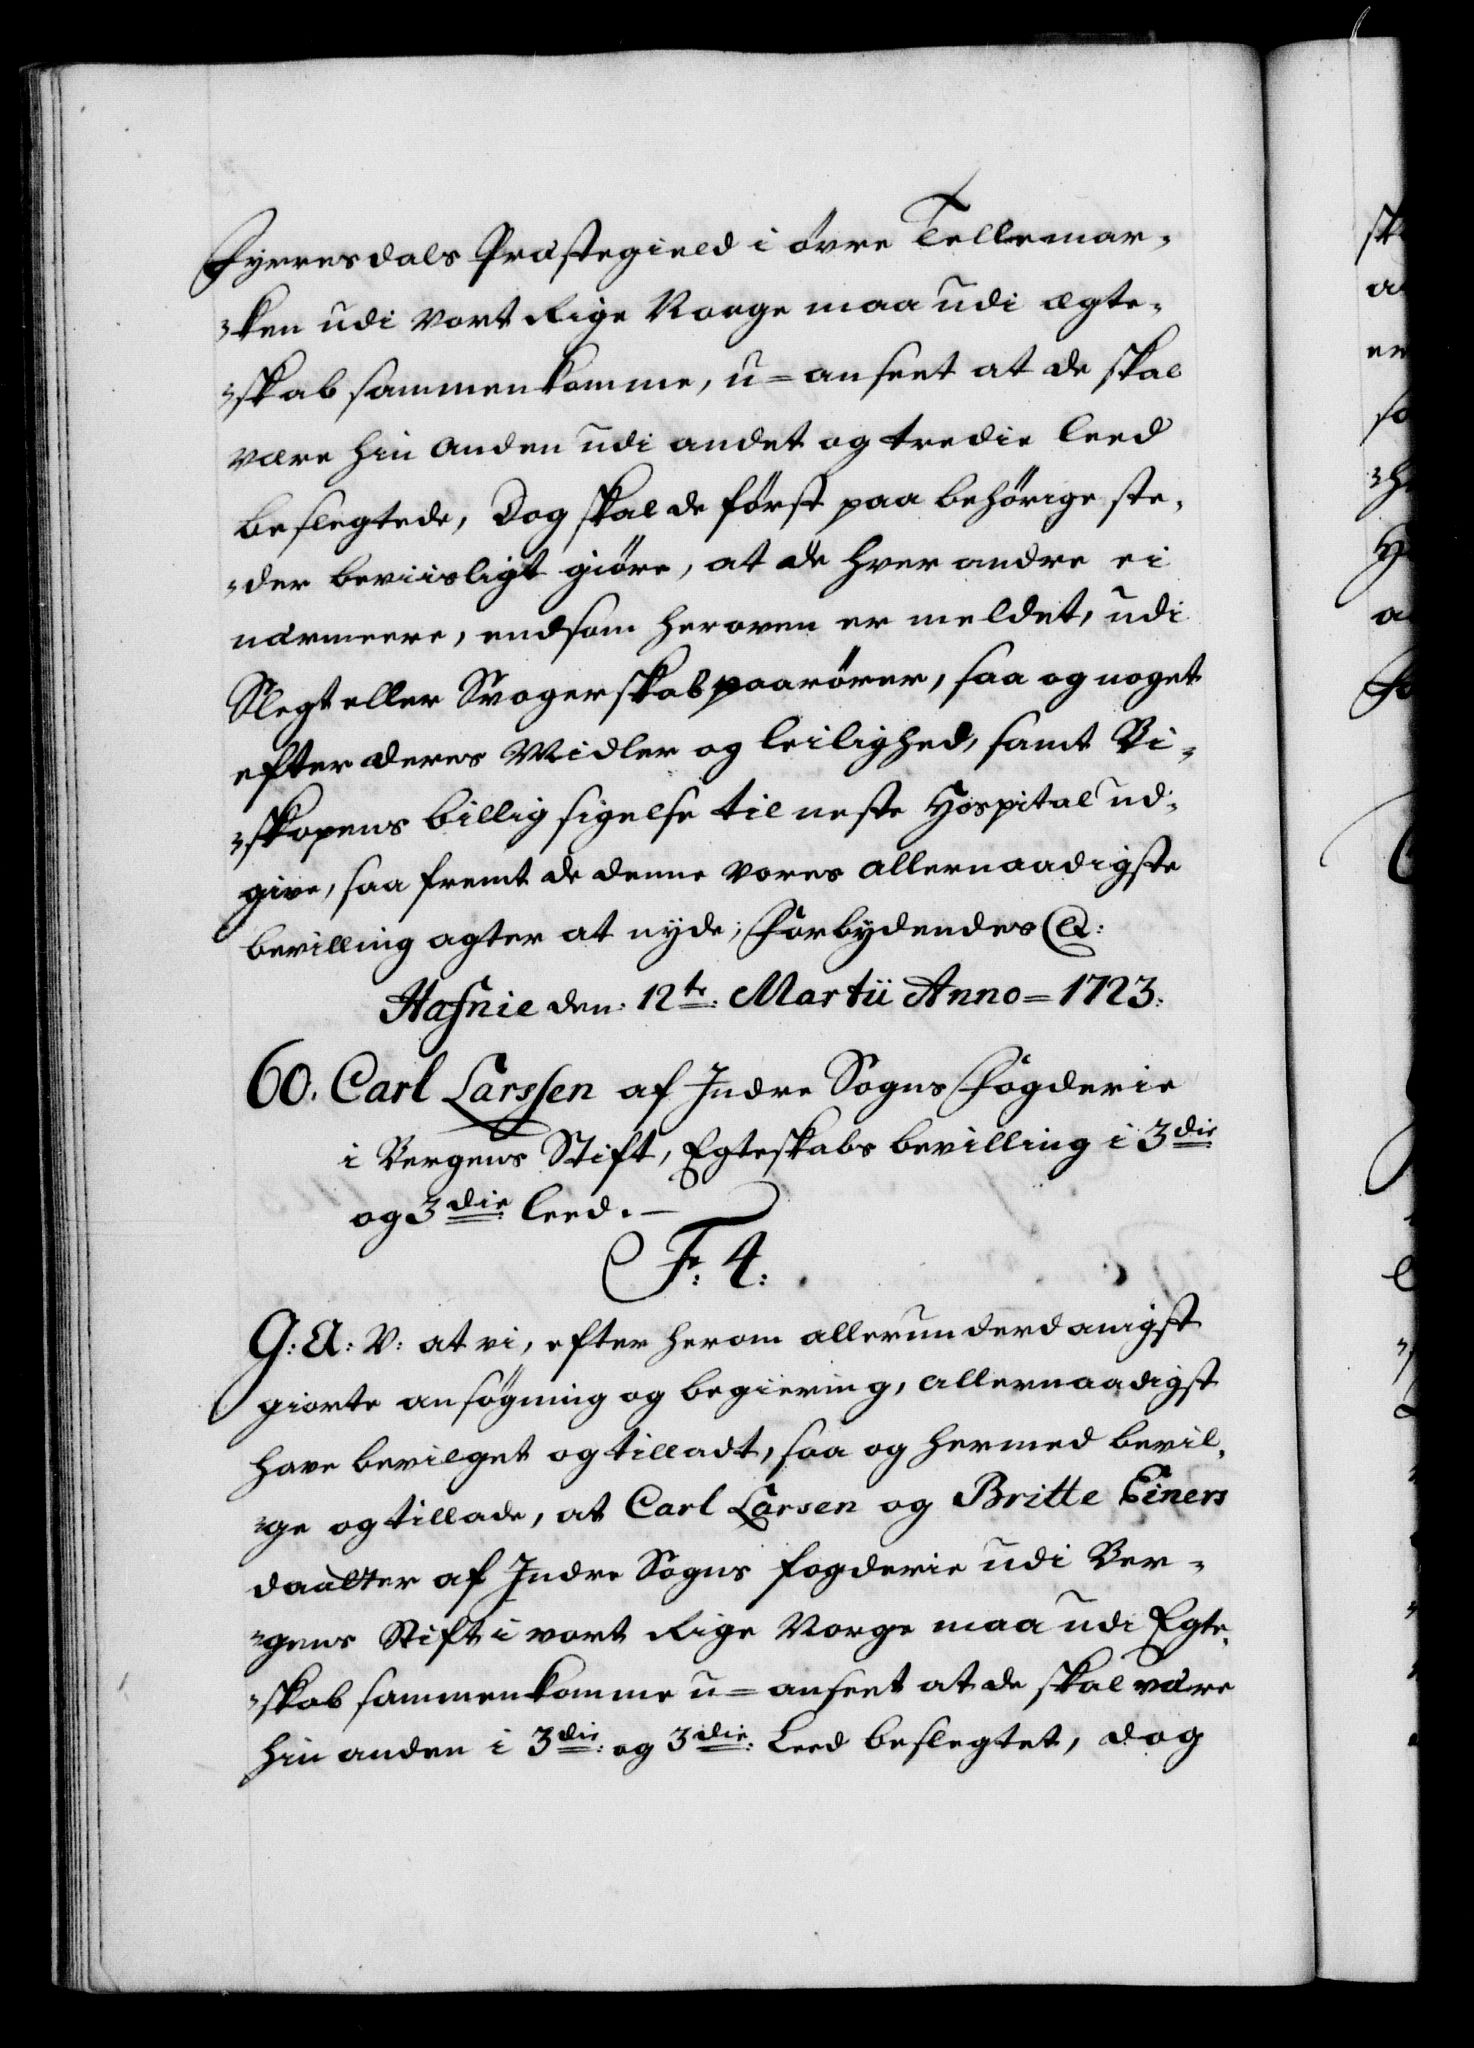 Fyrresdals Præstegield i øvre Tellemar-
-ken udi Vort Rige Norge maa udi ægte-
-skab sammenkomme, u=anseet at de skal
være hin anden udi andet og tredie leed
beslegtede, Dog skal de først paa behørige ste-
-der beviisligt giøre, at de hver andre ei
nærmeere, end som heroven er meldet, udi
Slegt eller Svogerskab paarører, saa og noget
efter deres Midler og leilighed, samt Bi-
-skopens billig sigelse til neste Hospital ud-
give, saa fremt de denne vores allernaadigste
bevilling agter at nyde; Forbydendes &:
Hafnie den: 12te: Martii Anno = 1723:
60. Carl Larssen af Indre Sogns Fogderie
i Bergens Stift, Egteskabs bevilling i 3die
og 3die leed.-
Fr: 4:
G: A: V: at vi, efter herom allerunderdanigst
giorte ansøgning og begiering, allernaadigst
have bevilget og tilladt, saa og hermed bevil-
-ge og tillade, at Carl Larsen og Britte Einers
daatter af Indre Sogns fogderie udi Ber-
-gens Stift i vort Rige Norge maa udi Egte-
-skab sammenkomme u=anseet at de skal være
hin anden i 3die: og 3die: Leed beslegtet, dog